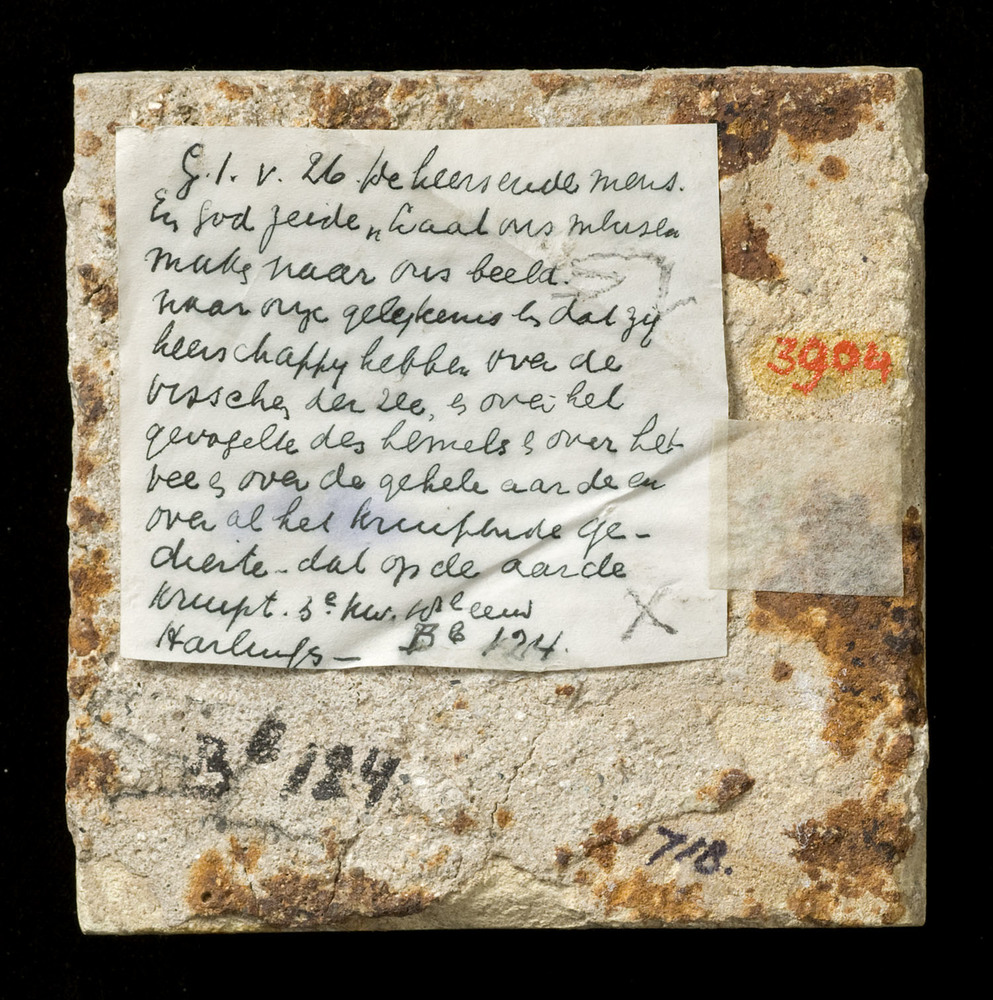 G. 1. v. 26. De heersende mens.
En God zeide „Laat ons mensen
maken naar ons beeld.
naar onze gelijkenis en dat zij
heerschappy hebben over de
visschen der zee, en over het
gevogelte des hemels en over het
vee en over de gehele aarde en
over al het kruipende ge-
dierte - dat op de aarde
kruipt. 3e kw. 18e eeuw
Harlingen - Bb 124.
X
3904
Bb 124
718.